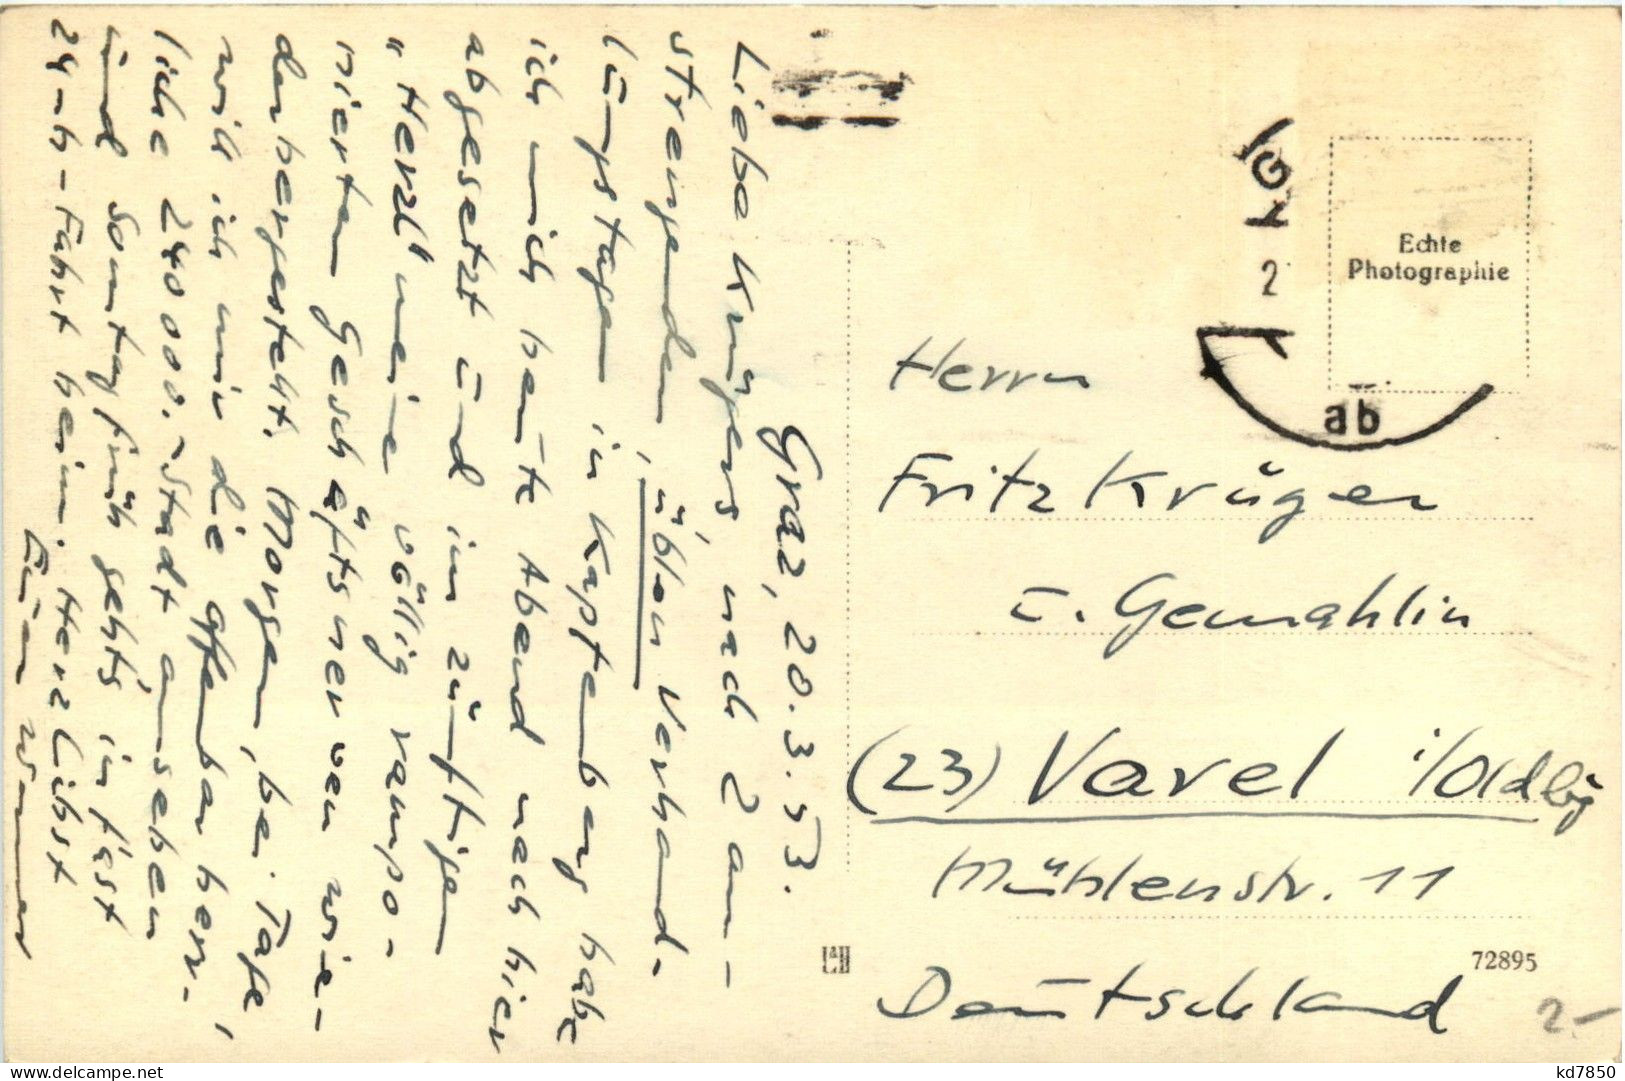 Graz, 20. 3. 53.
Liebe Krügers, nach 2 an-
strengenden, üblen Verhand-
lungstagen in Kapfenberg habe
ich mich heute Abend nach hier
abgesetzt und im zünftigen
"Herzl" meine völlig rampo-
nierten Geschäftsnerven wie-
derhergestellt. Morgen, bei Tage,
will ich mir die offenbar herr-
liche 240 000.-Stadt ansehen
und Sonntagfrüh gehts in fast
24-h-Fahrt heim. Herzlichst
Euer Werner
Echte
Photographie
2
ab
Herrn
Fritz Krüger
u. Gemahlin
(23) Varel i/Oldbg
Mühlenstr. 11
72895
Deutschland
2-
kd7850